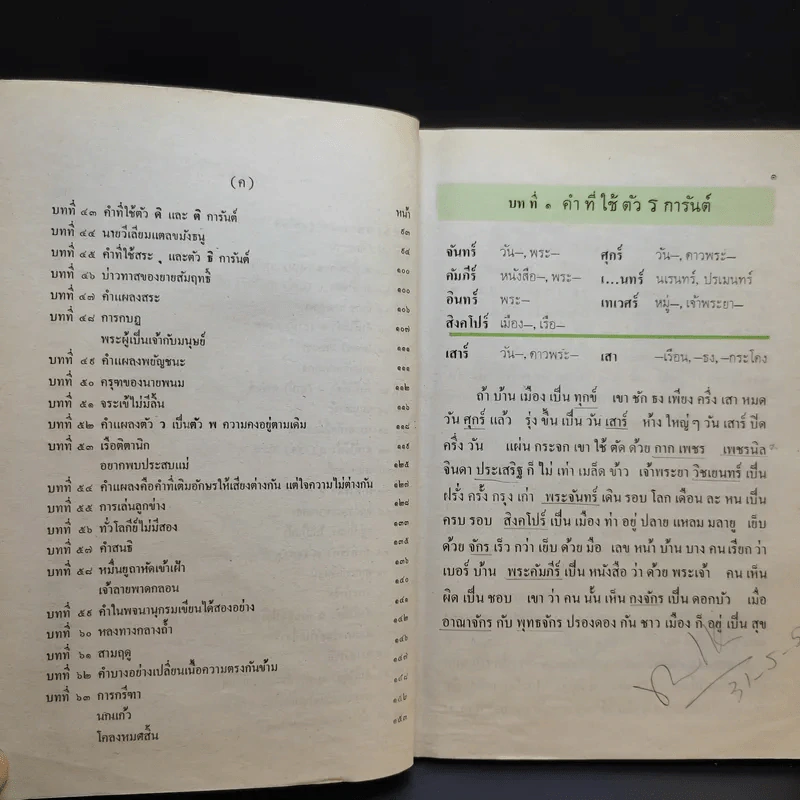 (ค)
หน้า
บทที่ ๔๓ คำที่ใช้ตัว ติ และ ตี การันต์ ๙๓
บทที่ ๔๔ นายวีเลียมแตลขมังธนู ๙๔
บทที่ ๔๕ คำที่ใช้สระ ุ และตัว ธิ การันต์ ๑๐๐
บทที่ ๔๖ บ่าวทาสของยายสัมฤทธิ์ ๑๐๐
บทที่ ๔๗ คำแผลงสระ ๑๐๕
บทที่ ๔๘ การกบฏ ๑๐๗
พระผู้เป็นเจ้ากับมนุษย์ ๑๑๑
บทที่ ๔๙ คำแผลงพยัญชนะ ๑๑๑
บทที่ ๕๐ ครุฑของนายพนม ๑๑๒
บทที่ ๕๑ จระเข้ไม่มีลิ้น ๑๑๖
บทที่ ๕๒ คำแผลงตัว ว เป็นตัว พ ความคงอยู่ตามเดิม ๑๑๘
บทที่ ๕๓ เรือติตานิก ๑๑๙
อยากพบประสบแม่ ๑๒๕
บทที่ ๕๔ คำแผลงคือคำที่เติมอักษรให้เสียงต่างกัน แต่ใจความไม่ต่างกัน ๑๒๘
บทที่ ๕๕ การเล่นลูกข่าง ๑๒๘
บทที่ ๕๖ ทั่วโลกีย์ไม่มีสอง ๑๓๓
บทที่ ๕๗ คำสนธิ ๑๓๕
บทที่ ๕๘ หมื่นยูถาหัดเข้าเฝ้า ๑๓๖
เจ้าลายพาดกลอน ๑๔๐
บทที่ ๕๙ คำในพจนานุกรมเขียนได้สองอย่าง ๑๔๑
บทที่ ๖๐ หลงทางกลางถ้ำ ๑๔๒
บทที่ ๖๑ สามฤดู ๑๔๖
บทที่ ๖๒ คำบางอย่างเปลี่ยนเนื้อความตรงกันข้าม ๑๔๗
บทที่ ๖๓ การกรีฑา ๑๔๘
นกแก้ว
โคลงหมศสิ้น ๑๕๓
๑
บทที่ ๑ คำที่ใช้ตัว ร การันต์
จันทร์ วัน–, พระ– ศุกร์ วัน–, ดาวพระ–
คัมภีร์ หนังสือ–, พระ– เ...นทร์ นเรนทร์, ปรเมนทร์
อินทร์ พระ– เทเวศร์ หมู่–, เจ้าพระยา–
สิงคโปร์ เมือง–, เรือ–
เสาร์ วัน–, ดาวพระ– เสา –เรือน, –ธง, –กระโดง
ถ้า บ้าน เมือง เป็น ทุกข์ เขา ชัก ธง เพียง ครึ่ง เสา หมด
วัน ศุกร์ แล้ว รุ่ง ขึ้น เป็น วัน เสาร์ ห้าง ใหญ่ ๆ วัน เสาร์ ปิด
ครึ่ง วัน แผ่น กระจก เขา ใช้ ตัด ด้วย กาก เพชร เพชรนิล
จินดา ประเสริฐ ก็ ไม่ เท่า เมล็ด ข้าว เจ้าพระยา วิชเยนทร์ เป็น
ฝรั่ง ครั้ง กรุง เก่า พระจันทร์ เดิน รอบ โลก เดือน ละ หน เป็น
ครบ รอบ สิงคโปร์ เป็น เมือง ท่า อยู่ ปลาย แหลม มลายู เย็บ
ด้วย จักร เร็ว กว่า เย็บ ด้วย มือ เลข หน้า บ้าน บาง คน เรียก ว่า
เบอร์ บ้าน พระคัมภีร์ เป็น หนังสือ ว่า ด้วย พระเจ้า คน เห็น
ผิด เป็น ชอบ เขา ว่า คน นั้น เห็น กงจักร เป็น ดอกบัว เมื่อ
อาณาจักร กับ พุทธจักร ปรองดอง กัน ชาว เมือง ก็ อยู่ เป็น สุข